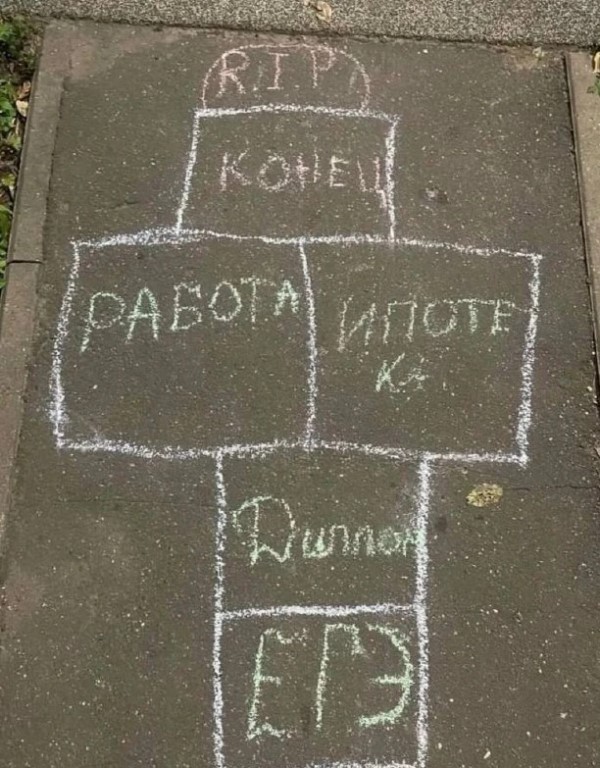 R.I.P.
КОНЕЦ
РАБОТА
ИПОТЕ
КА
Диплом
ЕГЭ